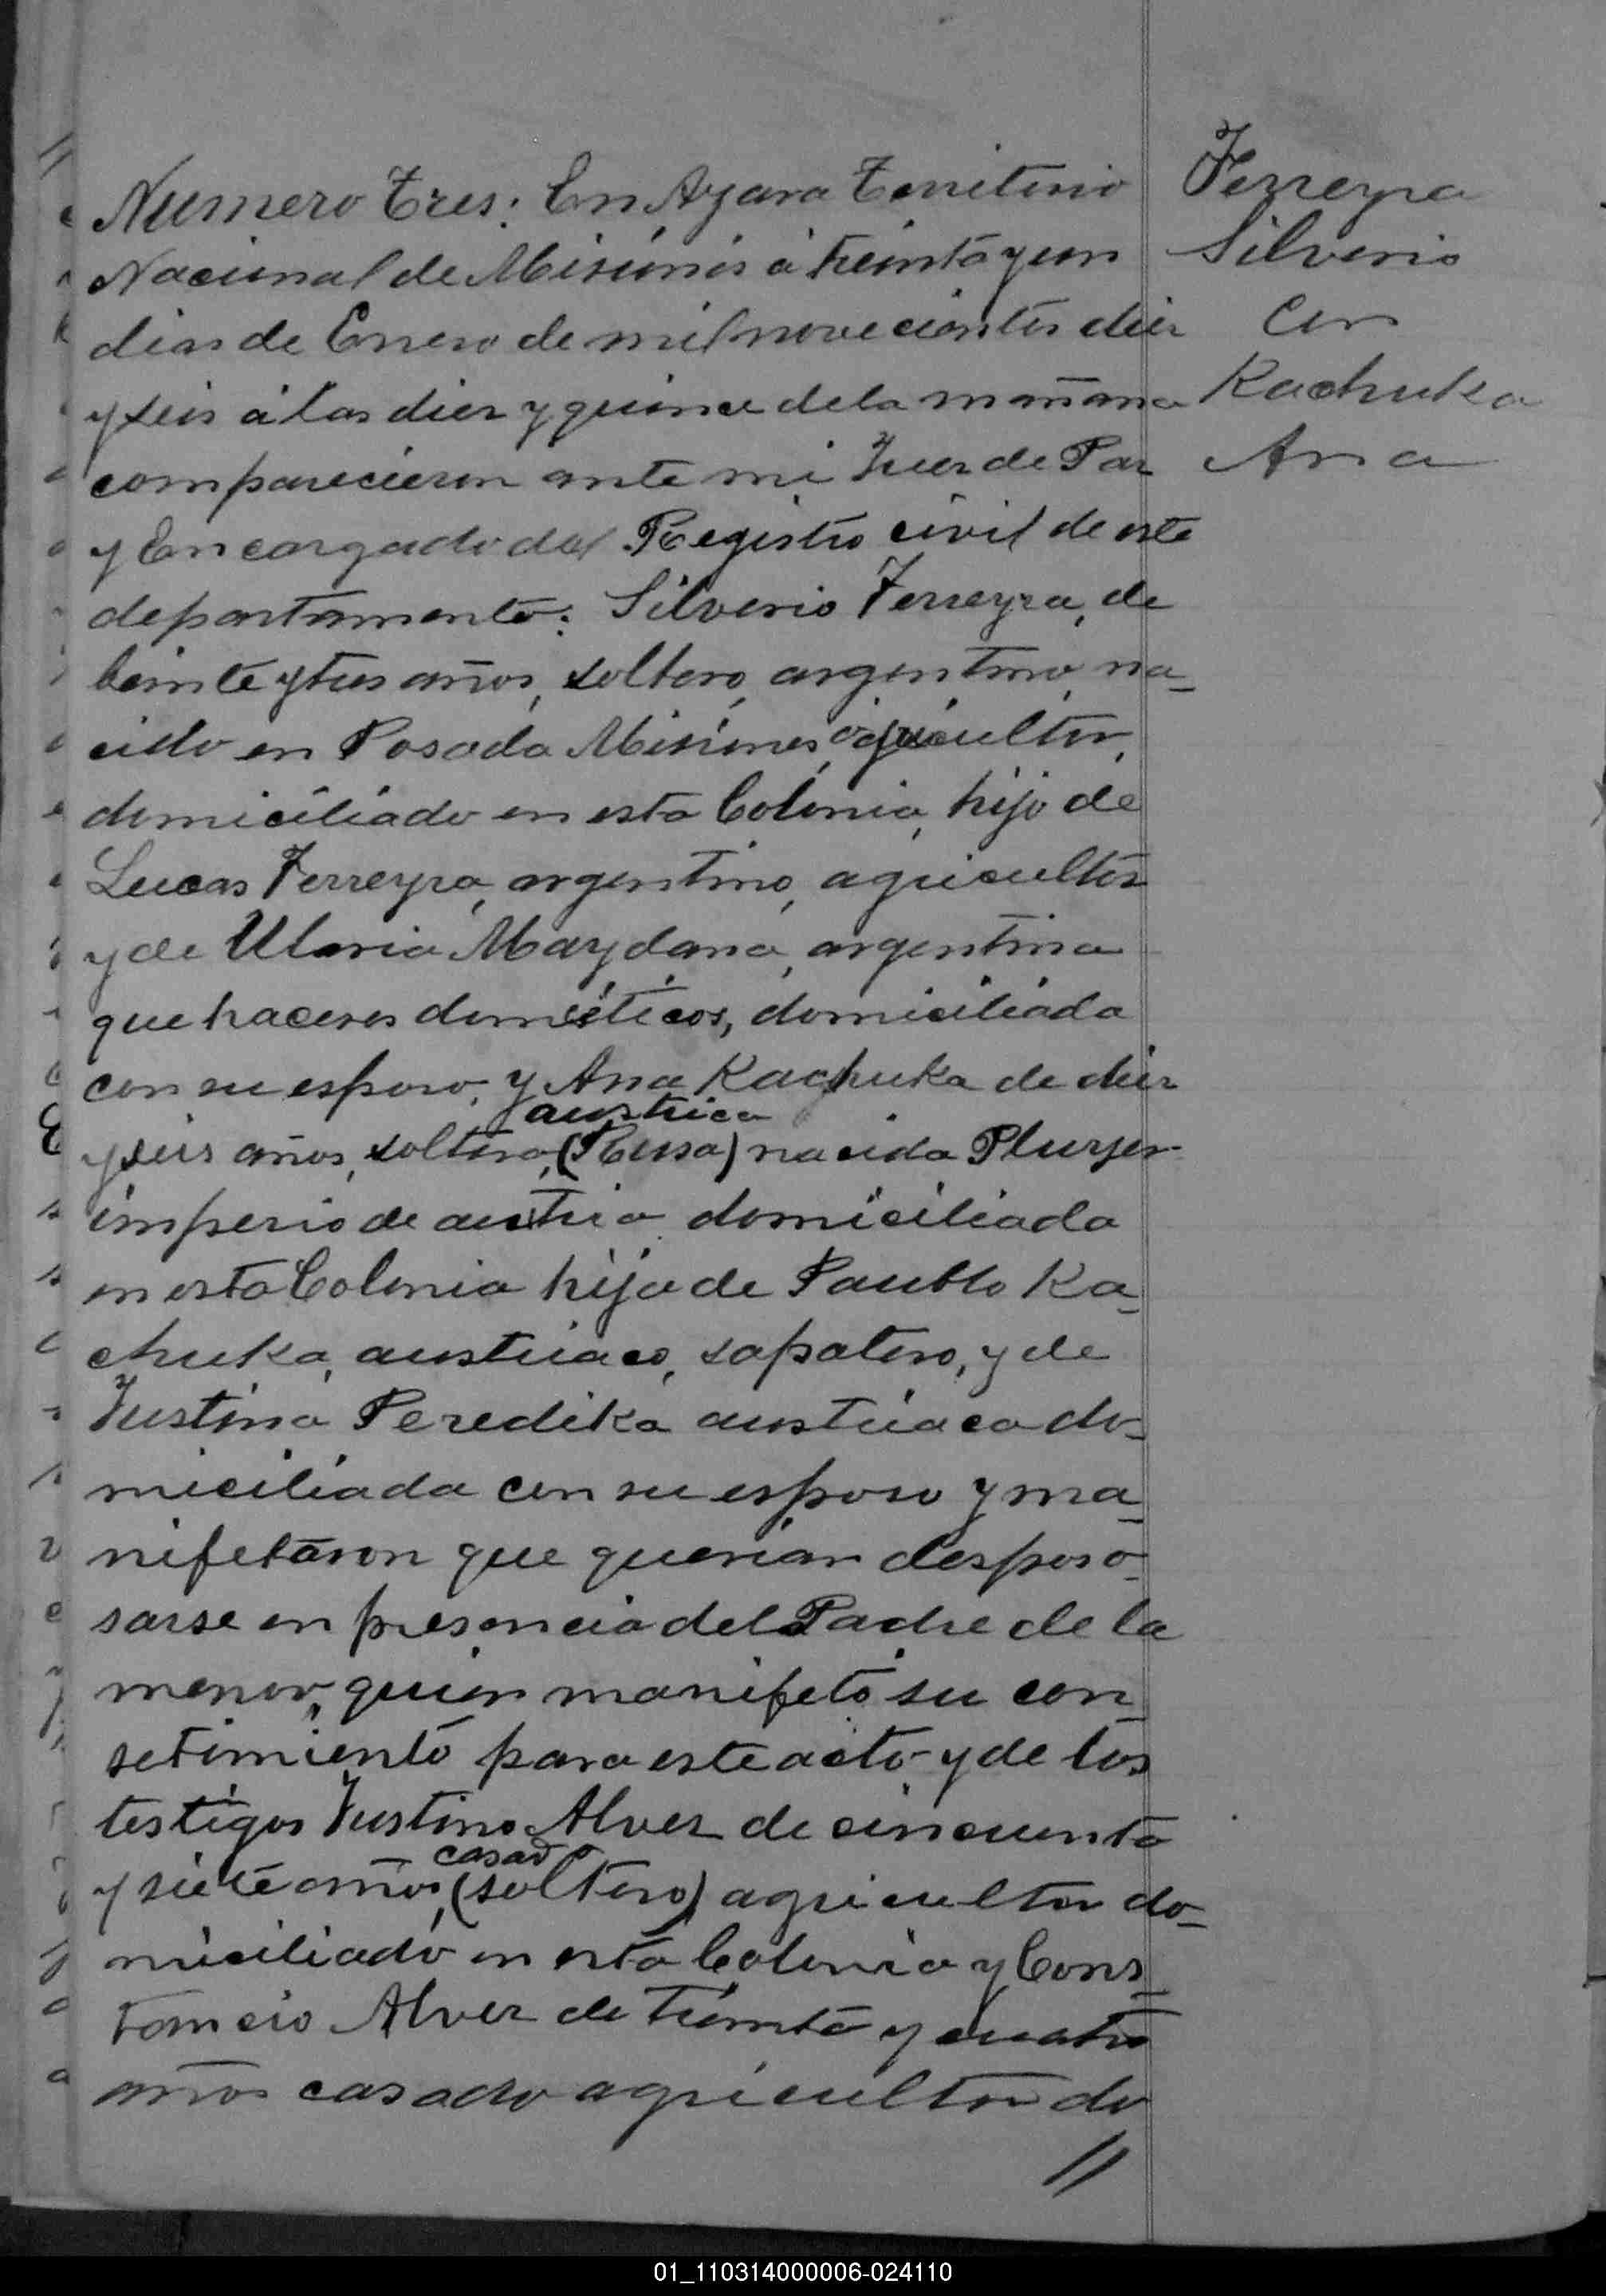 Numero Tres: En Azara Territorio
Nacional de Misiónes á treinta y un
dias de Enero de mil novecientos diez
y seis á las diez y quince de la mañana
comparecieron ante mi Juez de Paz
y Encargado del Registro civil de este
departamento: Silverio Ferreyra, de
beinte y tres años, soltero, argentino, na-
cido en Posada Misiones, agricultor,
domiciliado en esta Colonia, hijo de
Lucas Ferreyra, argentino, agricultor
y de Ularia Maydana, argentina
que haceres domésticos, domiciliada
con su esposo; y Ana Kachuka de diez
austrica
y seis años, soltera, (Rusa) nacida Pluzer
imperio de austria domiciliada
en esta Colonia hija de Paublo Ka-
chuka, austriaco, sapatero, y de
Justina Peredika austriaca do-
miciliada con su esposo y ma-
nifetaron que querian desposo-
sarse en presencia del Padre de la
menor, quien manifetó su con-
setimiento para este acto y de los
testigos Justino Alvez de cincuenta
casado
y siete años, (soltero) agricultor do-
miciliado en esta Colonia y Cons-
tancio Alvez de treinta y cuatro
años casado agricultor do
//
Ferreyra
Silverio
Con
Kachuka
Ana
01_110314000006-024110